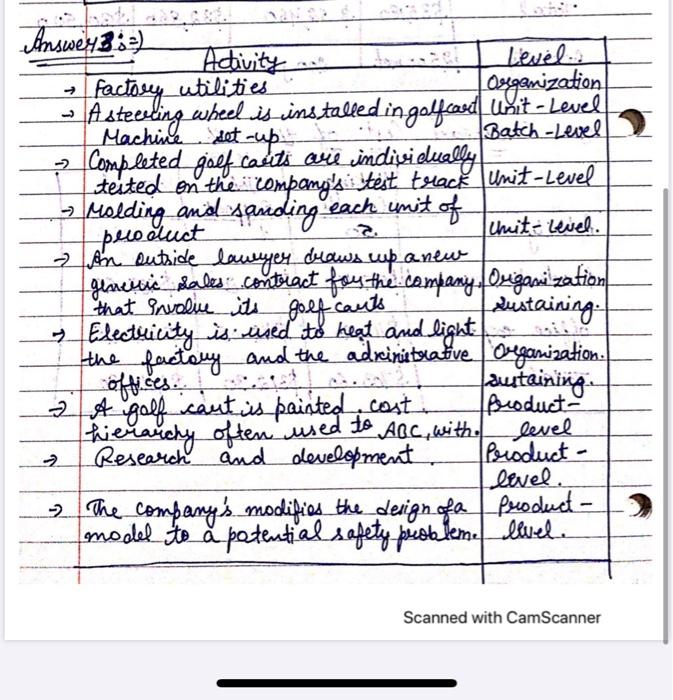 Answer 3 :=)
Activity Level :
→ Factory utilities Organization
→ A steering wheel is installed in golfcard Unit - Level
Machine set-up Batch - Level
→ Completed golf carts are individually
tested on the company's test track Unit - Level
→ Molding and sanding each unit of
product Unit - Level.
→ An outside lawyer draws up a new
generic sales contract for the company, Organization
that involve its golf carts sustaining.
→ Electricity is used to heat and light
the factory and the administrative Organization.
offices. sustaining.
→ A golf cart is painted. cost Product -
hierarchy often used to ABC, with. level
→ Research and development. Product -
level.
→ The company's modifies the design of a Product -
model to a potential safety problem. level.
Scanned with CamScanner